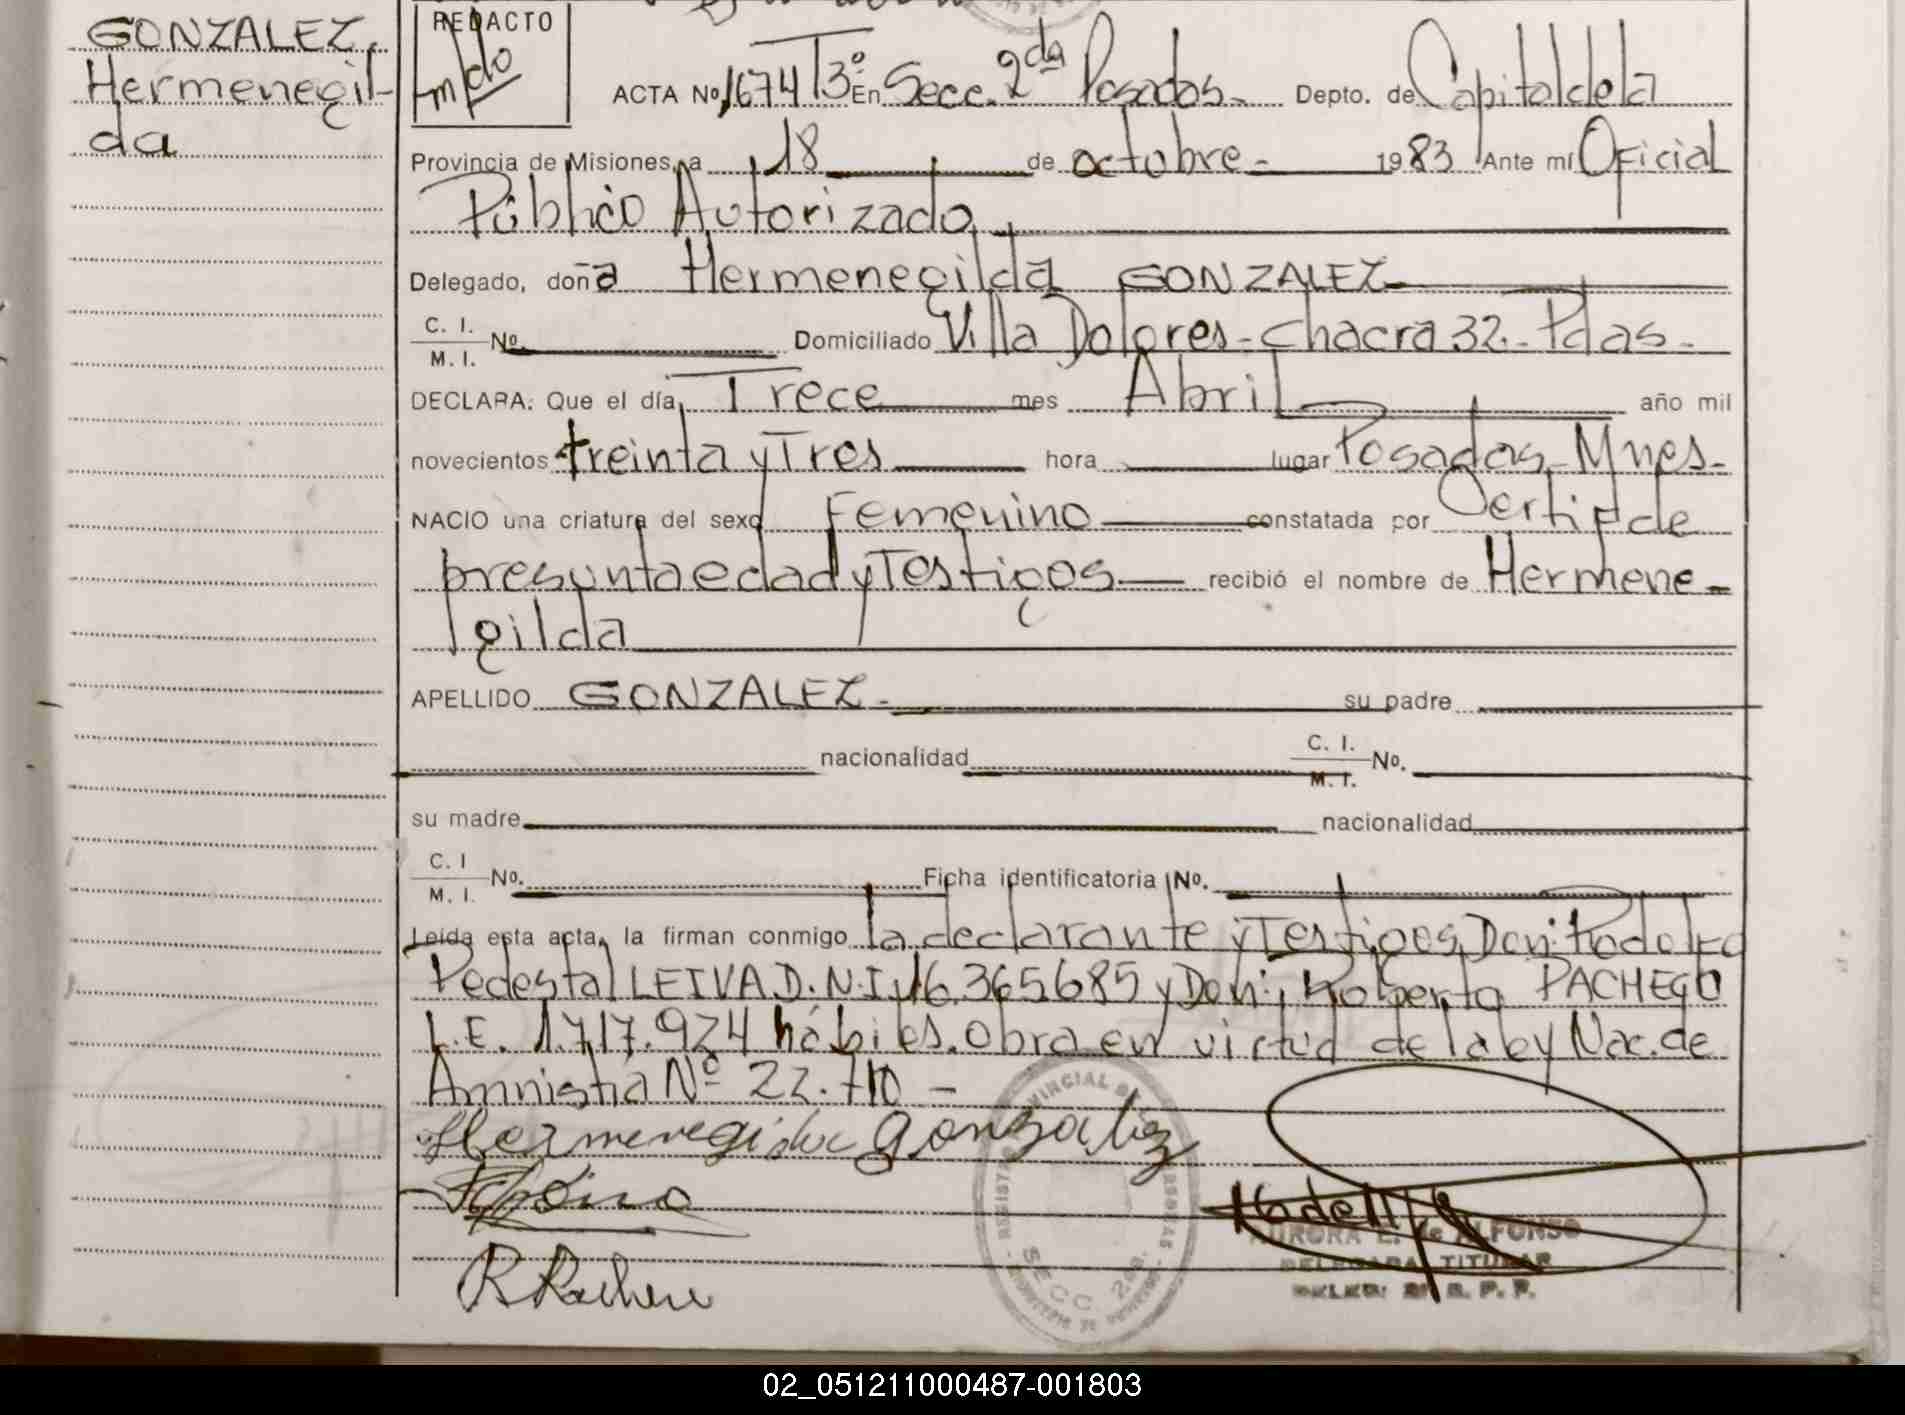 GONZALEZ,
Hermenegil-
da
REDACTO
ACTA Nº 1674 Tº 3º En Secc. 2da Posadas.- Depto. de Capital de la
Provincia de Misiones, a 18 de octubre- 1983 Ante mí Oficial
Público Autorizado
Delegado, doña Hermenegilda GONZALEZ
C. I.
M. I. Nº Domiciliado Villa Dolores-Chacra 32.-Pdas.-
DECLARA: Que el día Trece mes Abril año mil
novecientos treinta y Tres hora lugar Posadas-Mnes-
NACIO una criatura del sexo Femenino constatada por Certif de
presunta edad y Testigos recibió el nombre de Hermene-
gilda
APELLIDO GONZALEZ- su padre
nacionalidad C. I.
M. I. No.
su madre nacionalidad
C. I
M. I. No. Ficha identificatoria No.
Leída esta acta, la firman conmigo la declarante y Testigos, Don: Rodolfo
Pedestal LEIVA D.N.I. 16.365685 y Don: Roberto PACHECO
L.E. 1.717.924 hábiles. Obra en virtud de la ley Nac. de
Amnistia Nº 22.710 -
Hermenegilda Gonzalez
R Pacheco
SECC. 2da.
AURORA E. de ALFONSO
DELEGADA TITULAR
02_051211000487-001803